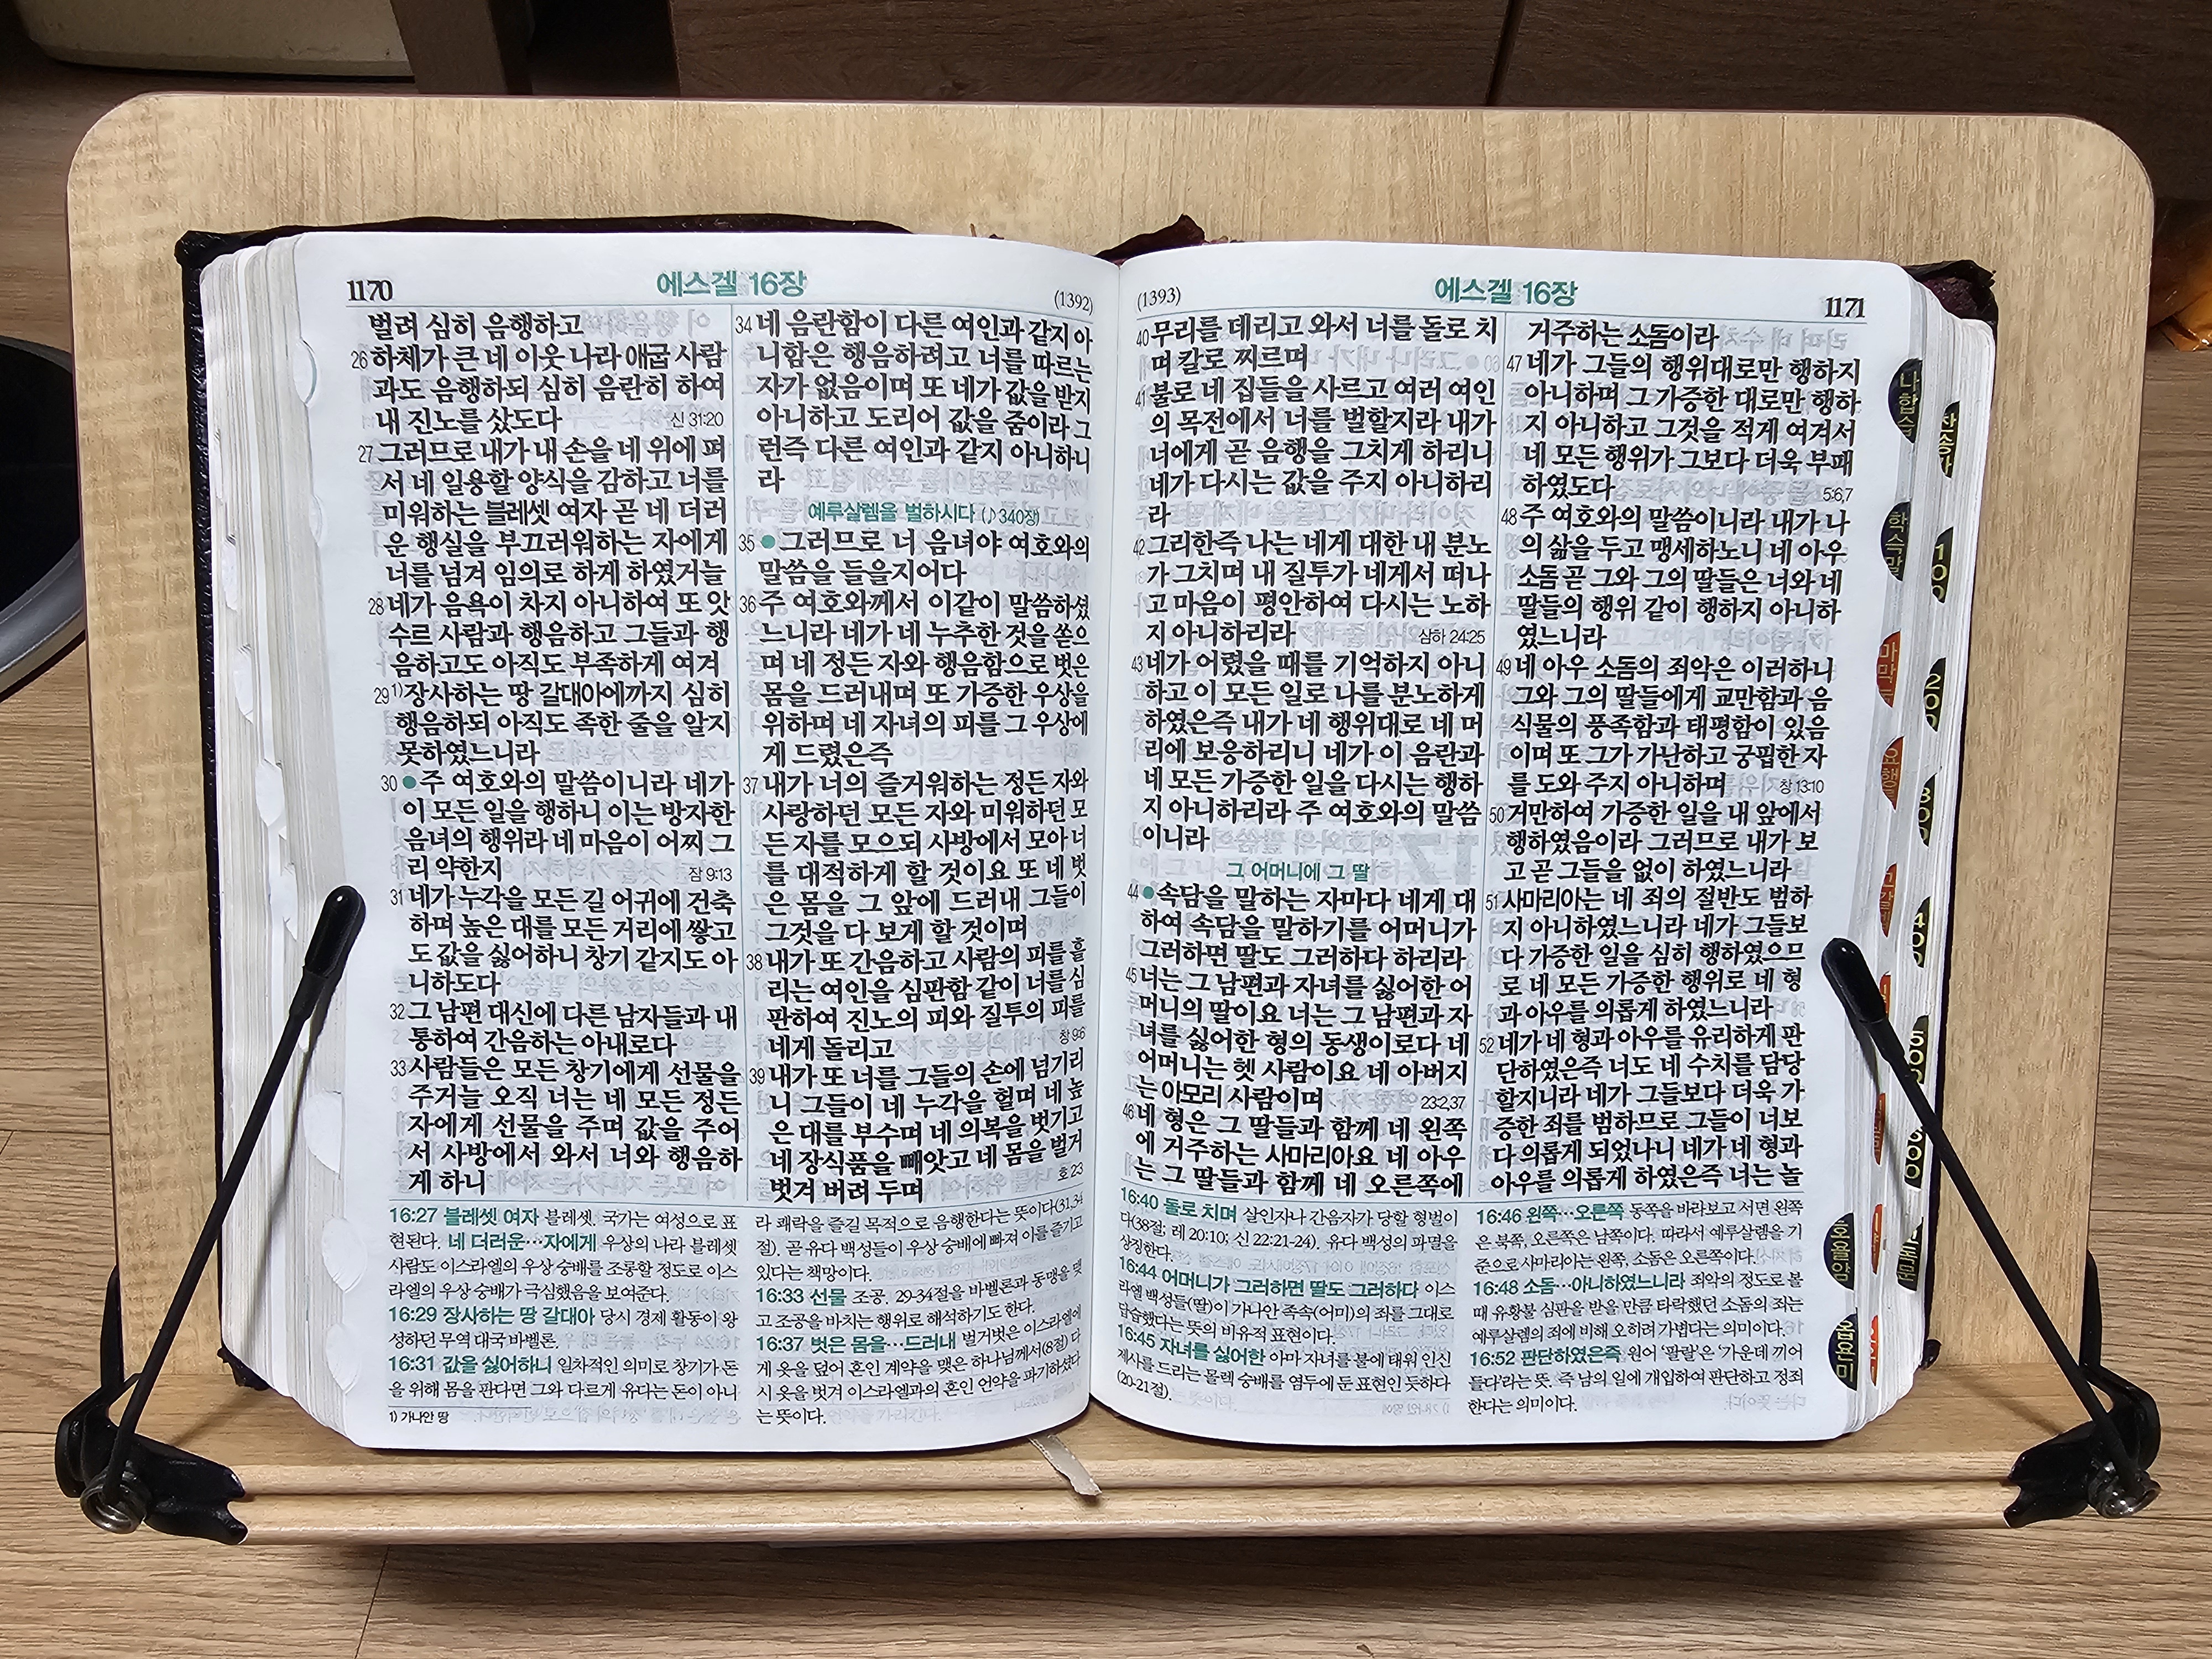 1170
에스겔 16장
(1392)
벌려 심히 음행하고
26 하체가 큰 네 이웃 나라 애굽 사람
과도 음행하되 심히 음란히 하여
내 진노를 샀도다 신 31:20
27 그러므로 내가 내 손을 네 위에 펴
서 네 일용할 양식을 감하고 너를
미워하는 블레셋 여자 곧 네 더러
운 행실을 부끄러워하는 자에게
너를 넘겨 임의로 하게 하였거늘
28 네가 음욕이 차지 아니하여 또 앗
수르 사람과 행음하고 그들과 행
음하고도 아직도 부족하게 여겨
29 1)장사하는 땅 갈대아에까지 심히
행음하되 아직도 족한 줄을 알지
못하였느니라
30 ●주 여호와의 말씀이니라 네가
이 모든 일을 행하니 이는 방자한
음녀의 행위라 네 마음이 어찌 그
리 약한지 잠 9:13
31 네가 누각을 모든 길 어귀에 건축
하며 높은 대를 모든 거리에 쌓고
도 값을 싫어하니 창기 같지도 아
니하도다
32 그 남편 대신에 다른 남자들과 내
통하여 간음하는 아내로다
33 사람들은 모든 창기에게 선물을
주거늘 오직 너는 네 모든 정든
자에게 선물을 주며 값을 주어
서 사방에서 와서 너와 행음하
게 하니
34 네 음란함이 다른 여인과 같지 아
니함은 행음하려고 너를 따르는
자가 없음이며 또 네가 값을 받지
아니하고 도리어 값을 줌이라 그
런즉 다른 여인과 같지 아니하니
라
예루살렘을 벌하시다 (♪340장)
35 ●그러므로 너 음녀야 여호와의
말씀을 들을지어다
36 주 여호와께서 이같이 말씀하셨
느니라 네가 네 누추한 것을 쏟으
며 네 정든 자와 행음함으로 벗은
몸을 드러내며 또 가증한 우상을
위하며 네 자녀의 피를 그 우상에
게 드렸은즉
37 내가 너의 즐거워하는 정든 자와
사랑하던 모든 자와 미워하던 모
든 자를 모으되 사방에서 모아 너
를 대적하게 할 것이요 또 네 벗
은 몸을 그 앞에 드러내 그들이
그것을 다 보게 할 것이며
38 내가 또 간음하고 사람의 피를 흘
리는 여인을 심판함 같이 너를 심
판하여 진노의 피와 질투의 피를
네게 돌리고 창 9:6
39 내가 또 너를 그들의 손에 넘기리
니 그들이 네 누각을 헐며 네 높
은 대를 부수며 네 의복을 벗기고
네 장식품을 빼앗고 네 몸을 벌거
벗겨 버려 두며 호 2:3
16:27 블레셋 여자 블레셋. 국가는 여성으로 표
현된다. 네 더러운…자에게 우상의 나라 블레셋
사람도 이스라엘의 우상 숭배를 조롱할 정도로 이스
라엘의 우상 숭배가 극심했음을 보여준다.
16:29 장사하는 땅 갈대아 당시 경제 활동이 왕
성하던 무역 대국 바벨론.
16:31 값을 싫어하니 일차적인 의미로 창기가 돈
을 위해 몸을 판다면 그와 다르게 유다는 돈이 아니
1) 가나안 땅
라 쾌락을 즐길 목적으로 음행한다는 뜻이다(31,34
절). 곧 유다 백성들이 우상 숭배에 빠져 이를 즐기고
있다는 책망이다.
16:33 선물 조공. 29-34절을 바벨론과 동맹을 맺
고 조공을 바치는 행위로 해석하기도 한다.
16:37 벗은 몸을…드러내 벌거벗은 이스라엘에
게 옷을 덮어 혼인 계약을 맺은 하나님께서(8절) 다
시 옷을 벗겨 이스라엘과의 혼인 언약을 파기하셨다
는 뜻이다.
(1393)
에스겔 16장
1171
40 무리를 데리고 와서 너를 돌로 치
며 칼로 찌르며
41 불로 네 집들을 사르고 여러 여인
의 목전에서 너를 벌할지라 내가
너에게 곧 음행을 그치게 하리니
네가 다시는 값을 주지 아니하리
라
42 그리한즉 나는 네게 대한 내 분노
가 그치며 내 질투가 네게서 떠나
고 마음이 평안하여 다시는 노하
지 아니하리라 삼하 24:25
43 네가 어렸을 때를 기억하지 아니
하고 이 모든 일로 나를 분노하게
하였은즉 내가 네 행위대로 네 머
리에 보응하리니 네가 이 음란과
네 모든 가증한 일을 다시는 행하
지 아니하리라 주 여호와의 말씀
이니라
그 어머니에 그 딸
44 ●속담을 말하는 자마다 네게 대
하여 속담을 말하기를 어머니가
그러하면 딸도 그러하다 하리라
45 너는 그 남편과 자녀를 싫어한 어
머니의 딸이요 너는 그 남편과 자
녀를 싫어한 형의 동생이로다 네
어머니는 헷 사람이요 네 아버지
는 아모리 사람이며 23:2,37
46 네 형은 그 딸들과 함께 네 왼쪽
에 거주하는 사마리아요 네 아우
는 그 딸들과 함께 네 오른쪽에
거주하는 소돔이라
47 네가 그들의 행위대로만 행하지
아니하며 그 가증한 대로만 행하
지 아니하고 그것을 적게 여겨서
네 모든 행위가 그보다 더욱 부패
하였도다 5:6,7
48 주 여호와의 말씀이니라 내가 나
의 삶을 두고 맹세하노니 네 아우
소돔 곧 그와 그의 딸들은 너와 네
딸들의 행위 같이 행하지 아니하
였느니라
49 네 아우 소돔의 죄악은 이러하니
그와 그의 딸들에게 교만함과 음
식물의 풍족함과 태평함이 있음
이며 또 그가 가난하고 궁핍한 자
를 도와 주지 아니하며 창 13:10
50 거만하여 가증한 일을 내 앞에서
행하였음이라 그러므로 내가 보
고 곧 그들을 없이 하였느니라
51 사마리아는 네 죄의 절반도 범하
지 아니하였느니라 네가 그들보
다 가증한 일을 심히 행하였으므
로 네 모든 가증한 행위로 네 형
과 아우를 의롭게 하였느니라
52 네가 네 형과 아우를 유리하게 판
단하였은즉 너도 네 수치를 담당
할지니라 네가 그들보다 더욱 가
증한 죄를 범하므로 그들이 너보
다 의롭게 되었나니 네가 네 형과
아우를 의롭게 하였은즉 너는 놀
16:40 돌로 치며 살인자나 간음자가 당할 형벌이
다(38절; 레 20:10; 신 22:21-24). 유다 백성의 파멸을
상징한다.
16:44 어머니가 그러하면 딸도 그러하다 이스
라엘 백성들(딸)이 가나안 족속(어미)의 죄를 그대로
답습했다는 뜻의 비유적 표현이다.
16:45 자녀를 싫어한 아마 자녀를 불에 태워 인신
제사를 드리는 몰렉 숭배를 염두에 둔 표현인 듯하다
(20-21절).
16:46 왼쪽…오른쪽 동쪽을 바라보고 서면 왼쪽
은 북쪽, 오른쪽은 남쪽이다. 따라서 예루살렘을 기
준으로 사마리아는 왼쪽, 소돔은 오른쪽이다.
16:48 소돔…아니하였느니라 죄악의 정도로 볼
때 유황불 심판을 받을 만큼 타락했던 소돔의 죄는
예루살렘의 죄에 비해 오히려 가볍다는 의미이다.
16:52 판단하였은즉 원어 '팔랄'은 '가운데 끼어
들다'라는 뜻. 즉 남의 일에 개입하여 판단하고 정죄
한다는 의미이다.
나합습
학슥말
마막
요행
호욜암
옵욘미
100
200
300
400
500
600